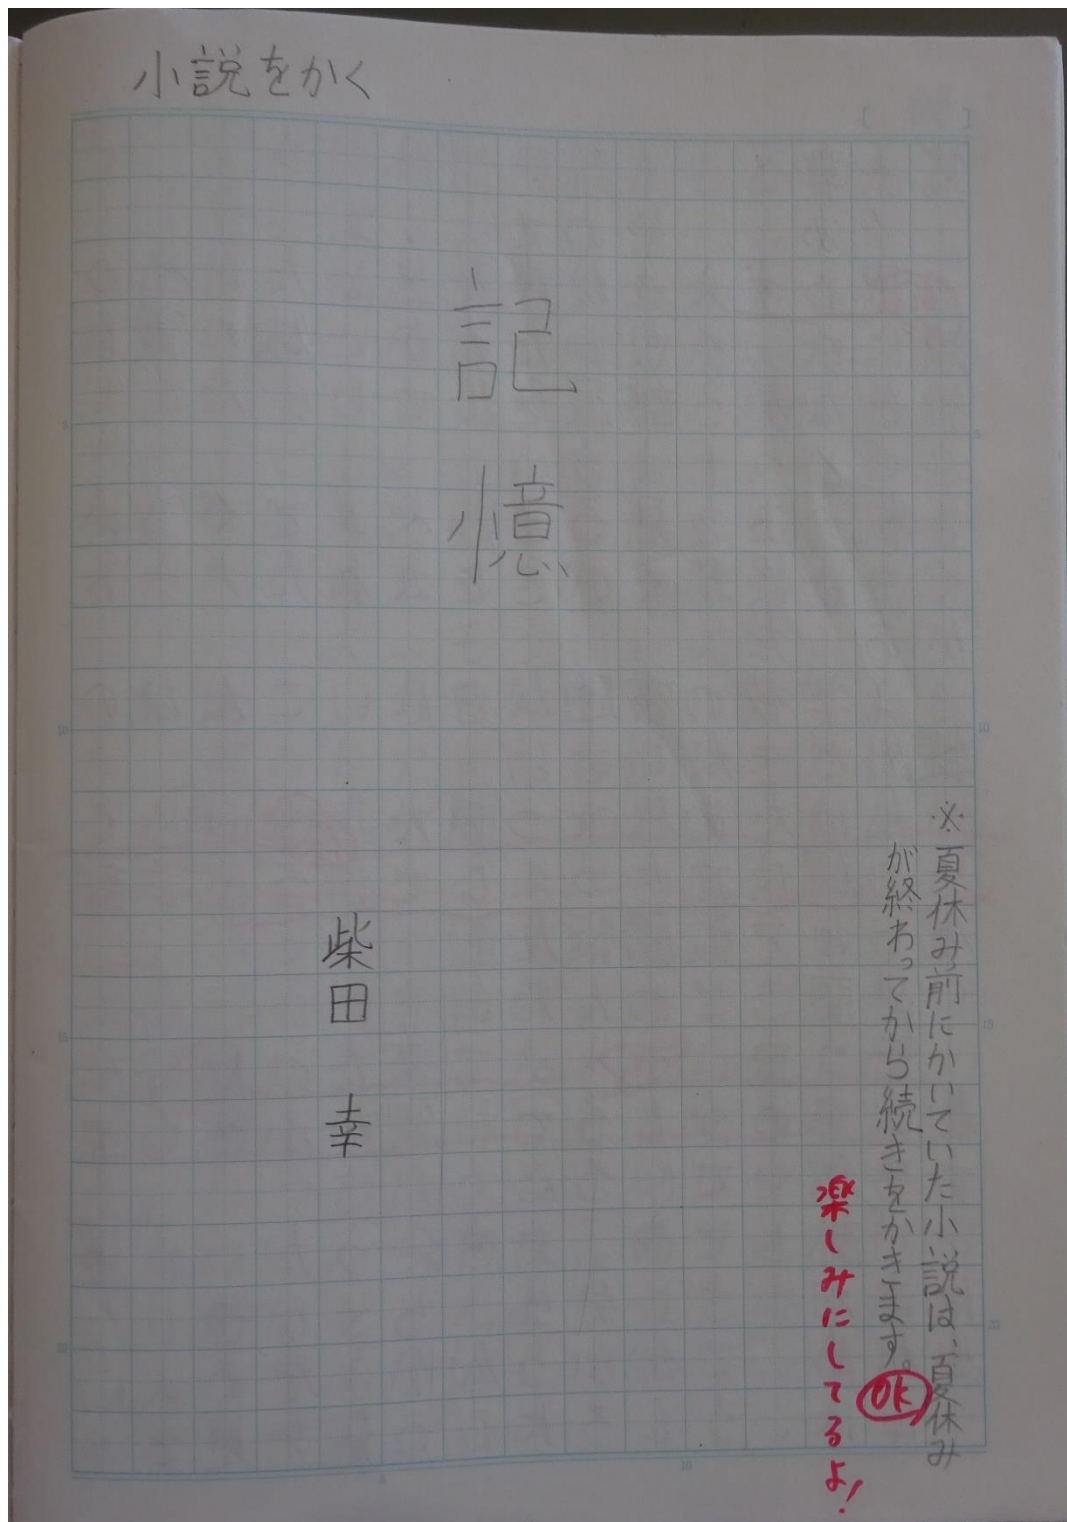 小説をかく
※夏休み前にかいていた小説は、夏休み
が終わってから続きをかきます。
OK
楽しみにしてるよ!
記憶
柴田 幸